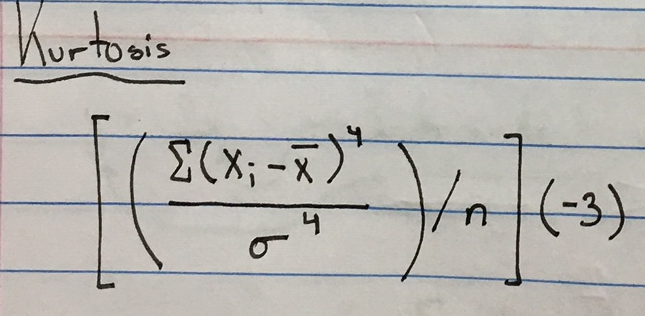 Kurtosis
[(Σ(Xᵢ-x̄)⁴/σ⁴)/n](-3)